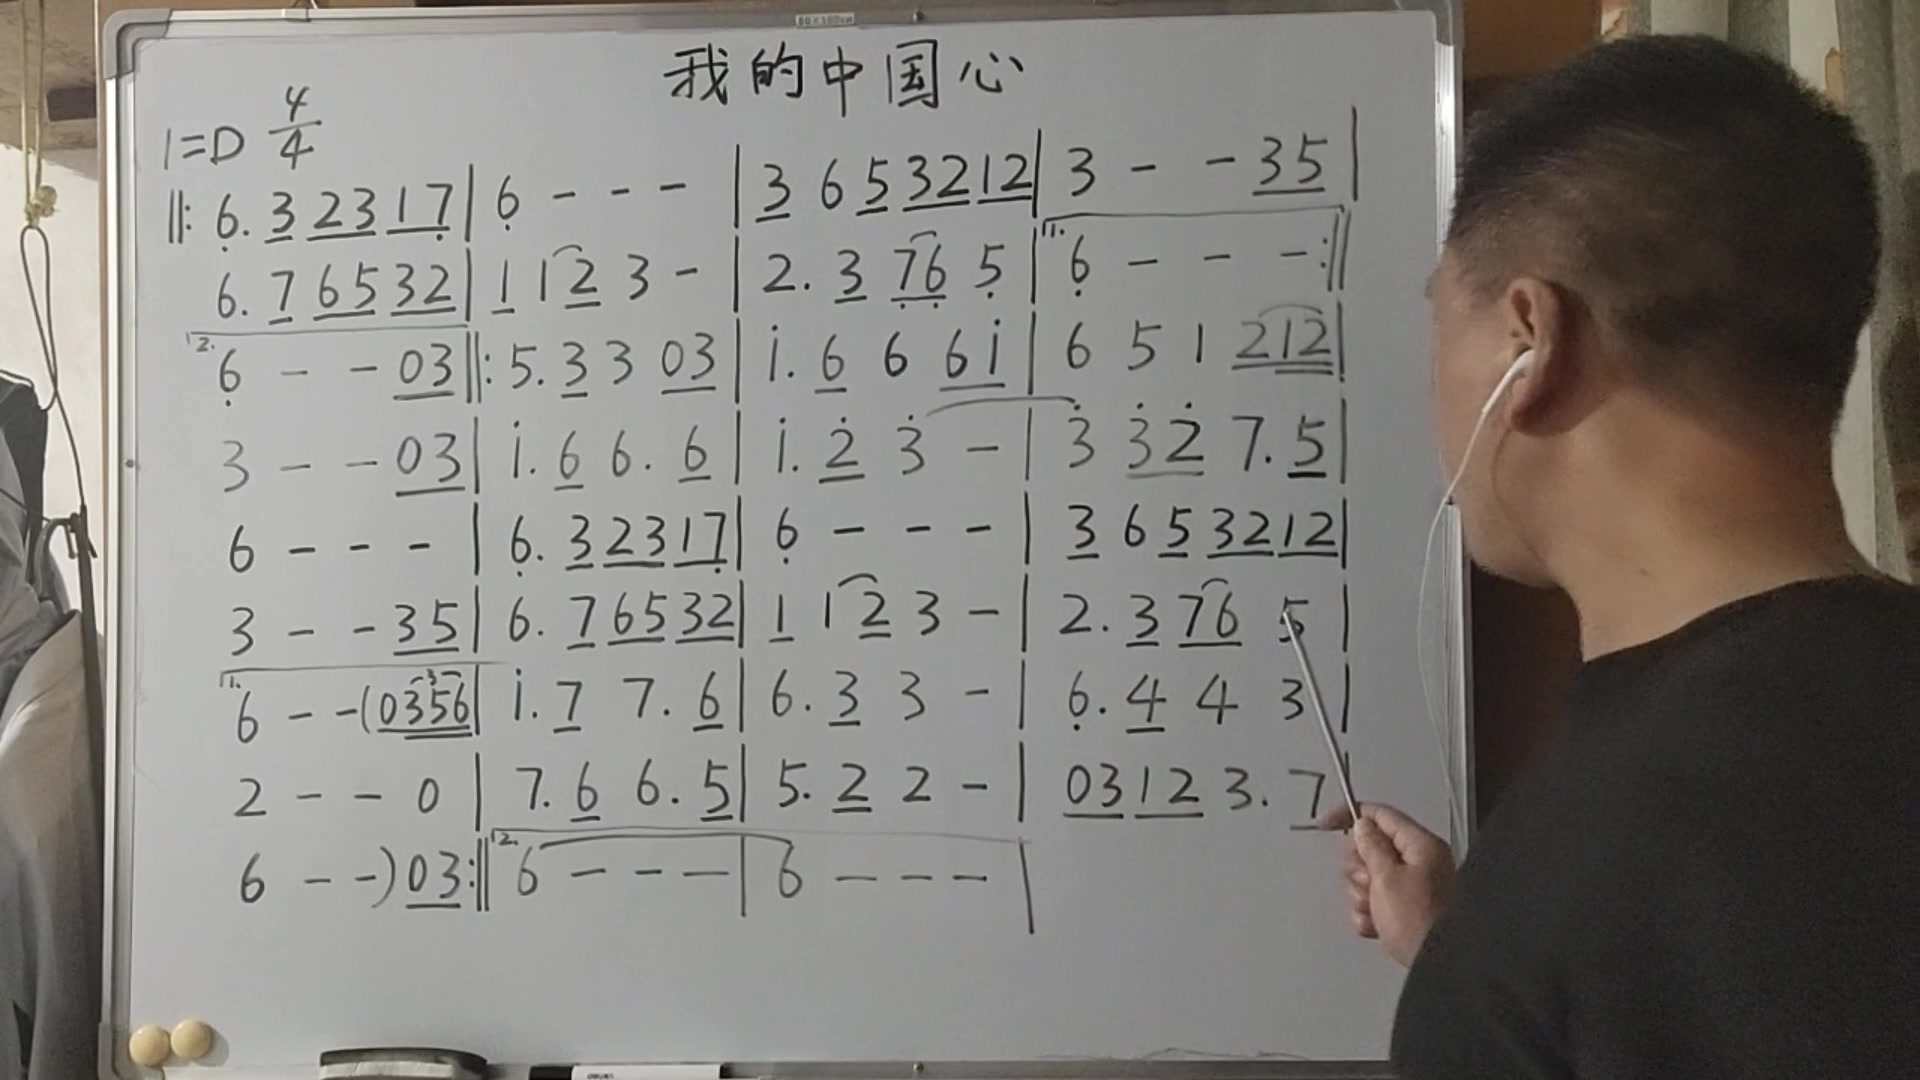 60×100cm
我的中国心
1=D 4/4
‖: 6̣. 3 2 3 1 7̣ | 6̣ - - - | 3 6 5 3 2 1 2 | 3 - - 3 5 |
6. 7 6 5 3 2 | 1 1 2 3 - | 2. 3 7̣ 6̣ 5̣ | 1. 6̣ - - - :‖
2. 6̣ - - 0 3 ‖: 5. 3 3 0 3 | 1̇. 6 6 6 1̇ | 6 5 1 2 1 2 |
3 - - 0 3 | 1̇. 6 6. 6 | 1̇. 2̇ 3̇ - | 3̇ 3̇ 2̇ 7. 5 |
6 - - - | 6̣. 3 2 3 1 7̣ | 6̣ - - - | 3 6 5 3 2 1 2 |
3 - - 3 5 | 6. 7 6 5 3 2 | 1 1 2 3 - | 2. 3 7 6 5 |
1. 6 - - ( 0 3 5 6 3 | 1̇. 7 7. 6 | 6. 3 3 - | 6̣. 4 4 3 |
2 - - 0 | 7. 6 6. 5 | 5. 2 2 - | 0 3 1 2 3. 7 |
6 - - ) 0 3 :‖ 2. 6 - - - | 6 - - - |
deli